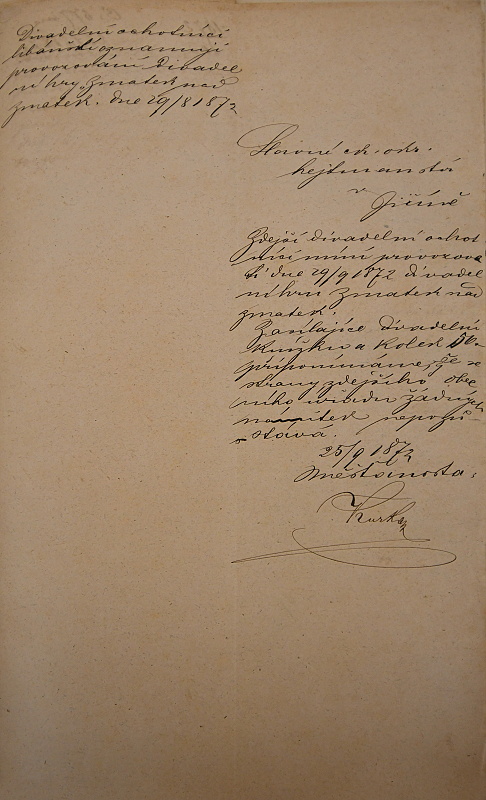 Divadelní ochotníci
libánští oznamují
provozování divadel
ní hry „Zmatek nad
zmatek. dne 29/8 1872
Slavné ck. okr.
hejtmanství
v
Jičíně
Zdejší divadelní ochot
níci míní provozova
ti dne 29/9 1872 divadel
ní hru Zmatek nad
zmatek.
Zasílajíce divadelní
knížku a kolek 50
připomínáme, že se
strany zdejšího obec
ního úřadu žádných
námitek nepozů
stává.
25/9 1872
Měšťanosta: